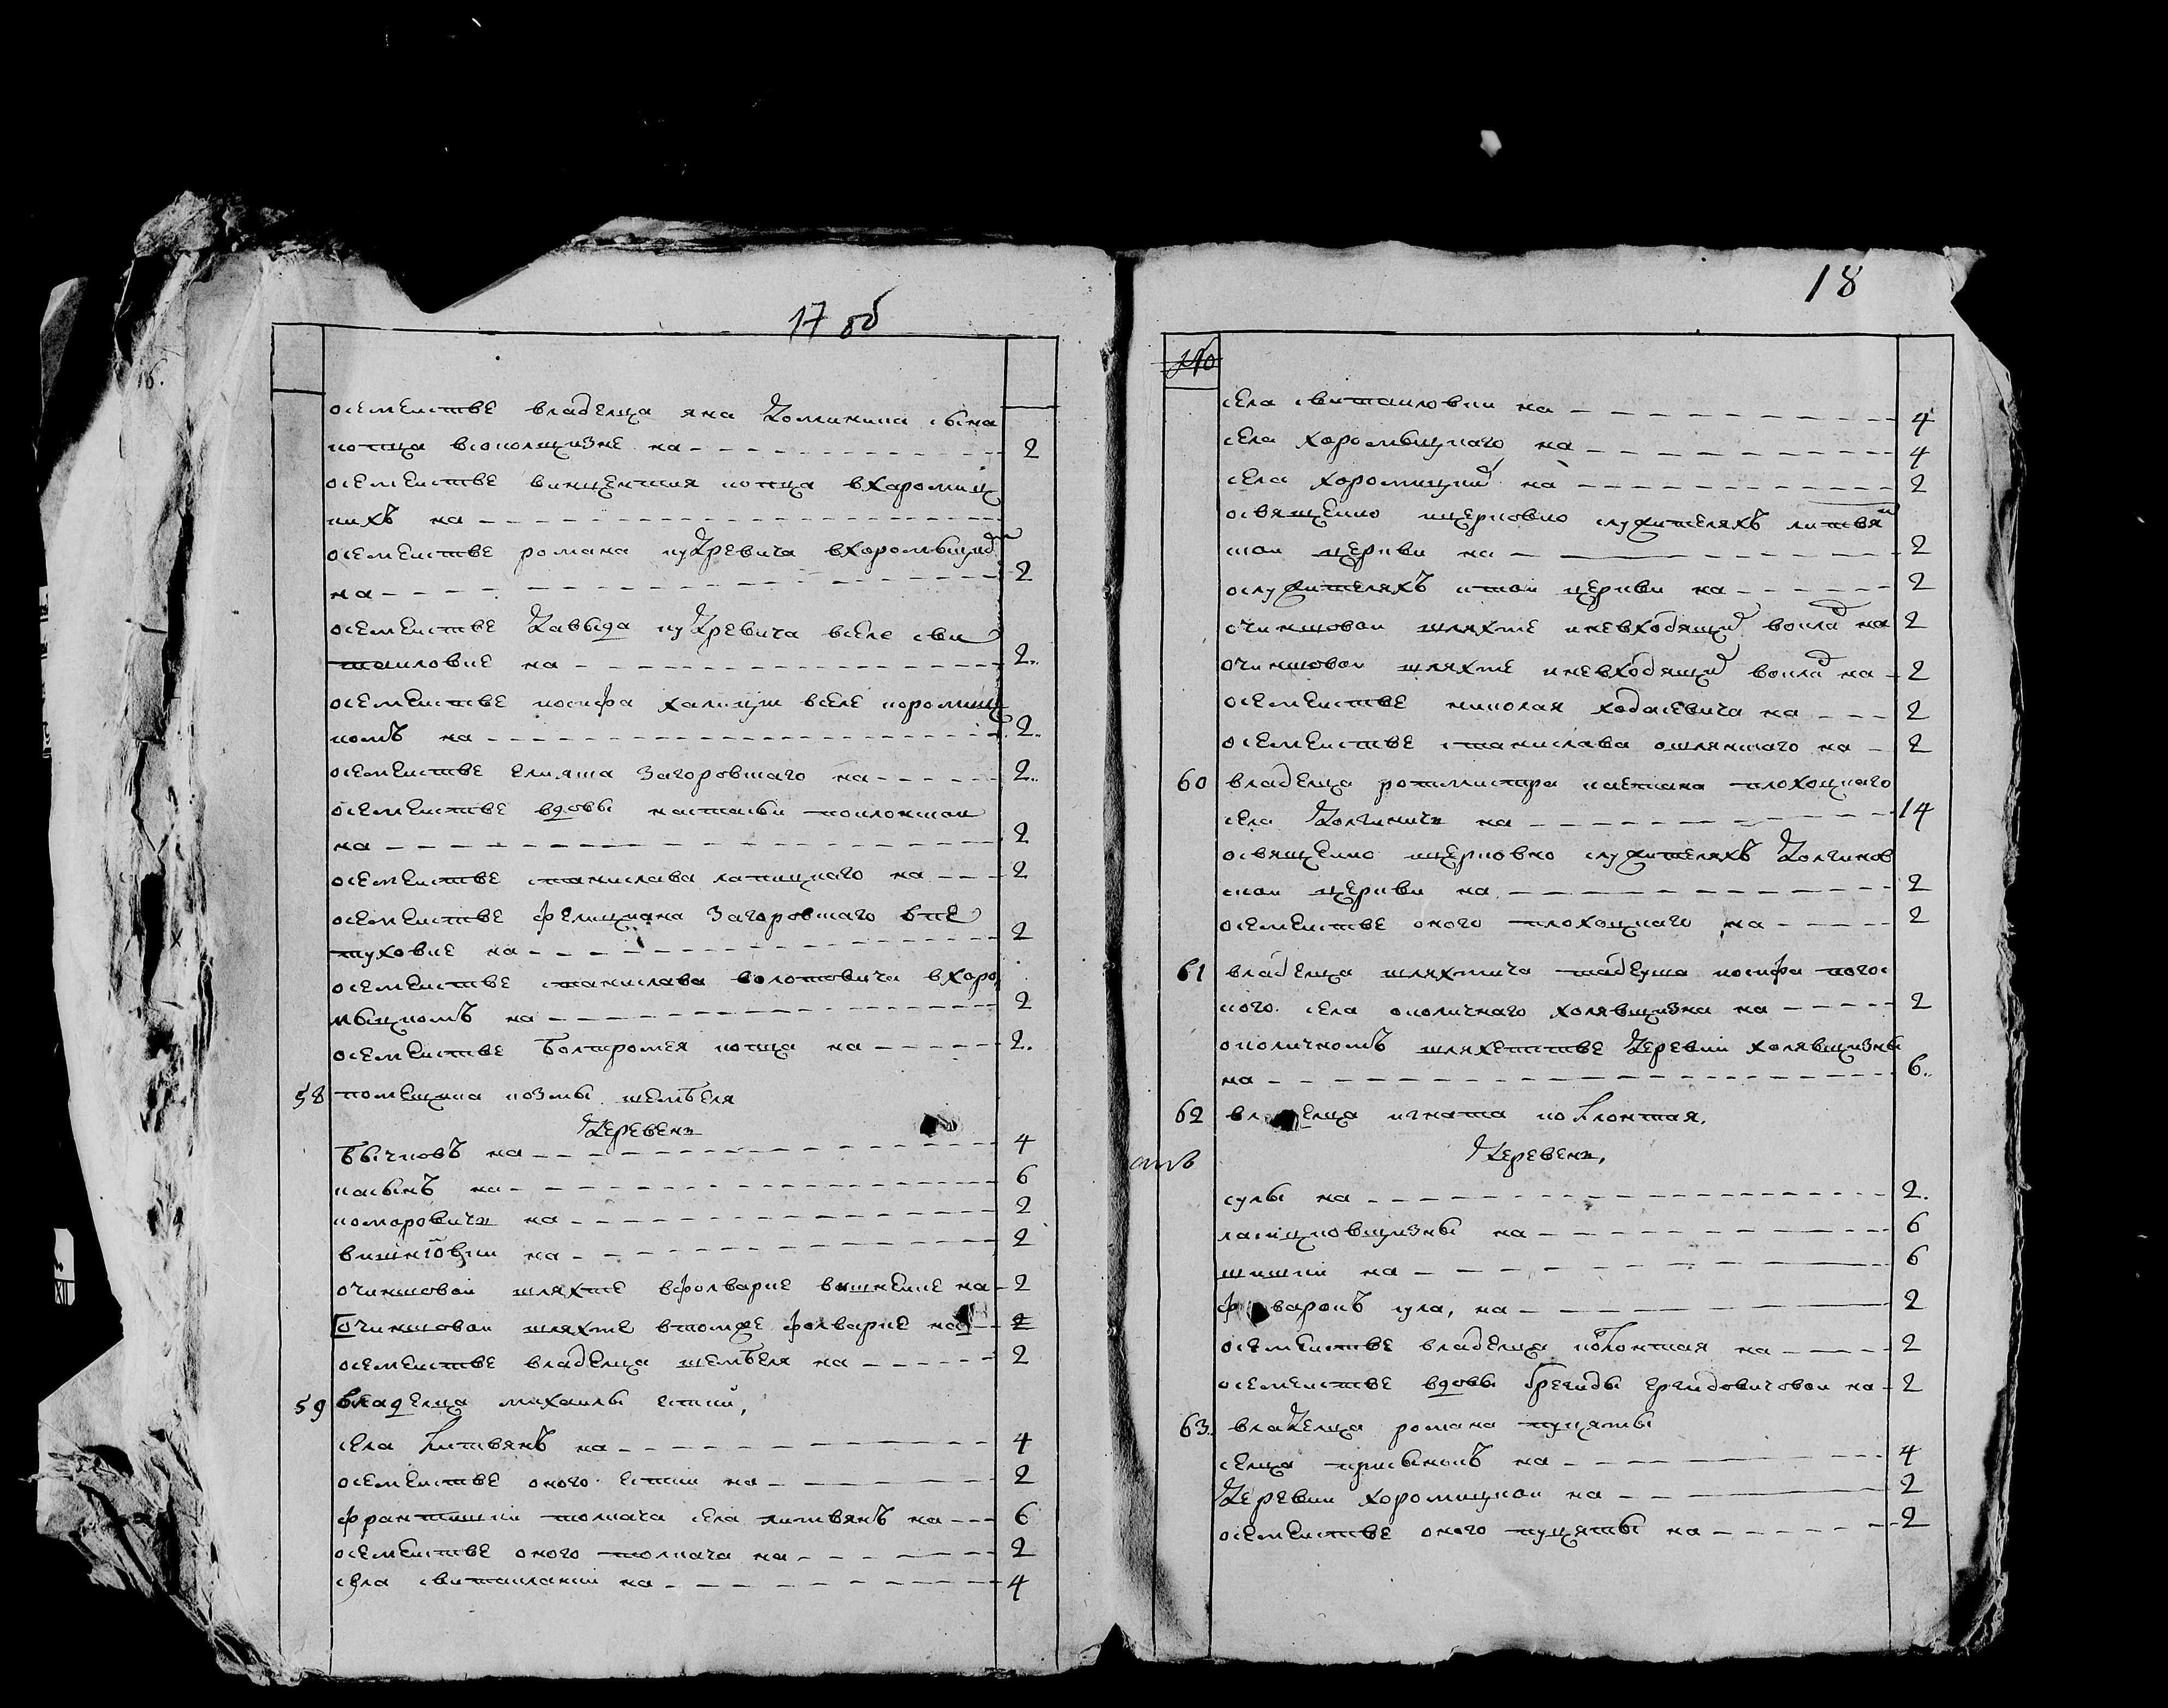 17 об
осемеистве владелца яна доминика сына
котца всоколщизне на 2
осемеистве винцентия котца вхаромиц
кихъ на
осемеистве романа кудревича вхоромыцкой
на 2
осемеистве давыда кудревича вселе сви
таиловке на 2
осемеистве иосифа халицы вселе королищ
комъ на 2
осемеистве елияша загоровскаго на 2
осемеистве вдовы настасьи поклонскои
на 2
осемеистве станислава лапицкаго на 2
осемеистве фелициана загоровскаго впе
туховке на 2
осемеистве станислава болотовича вхоро
мыцкомъ на 2
осемеистве болтромея котца на 2
58 помещика козмы шембеля
деревень
бычковъ на 4
касынъ на 6
комаровичи на 2
вишневки на 2
очиншовои шляхте вфолварке вишневке на 2
очиншовои шляхте втомже фолварке на 2
осемеистве владелца шембеля на 2
59 владелца михаилы еткии,
села литвянъ на 4
осемеистве оного еткии на 2
франтишки толкача села литвянъ на 6
осемеистве оного толкача на 2
села свитаилавки на 4
18
№
села свитаиловки на 4
села хоромыцкаго на 4
села хоромицкий на 2
освященно ицерковно служителяхъ литвян
скои церкви на 2
ослужителяхъ стои церкви на 2
очиншовои шляхте иневходящей вокладъ на 2
очиншовои шляхте иневходящей вокладъ на 2
осемеистве николая ходасевича на 2
осемеистве станислава ошлянскаго на 2
60 владелца ротмистра каетана плохоцкаго
села долгиничи на 14
освященно ицерковно служителяхъ долгинов
скои церкви на 2
осемеистве оного плохоцкаго на 2
61 владелца шляхтича тадеуша иосифа погос
кого села околичнаго холявщизна на 2
околичномъ шляхетстве деревни холявщизны
на 6
62 владелца игната коллонтая,
деревень,
сулы на 2
ласицковщизны на 6
шишки на 6
фолварокъ сула, на 2
осемеистве владелца колонтая на 2
осемеистве вдовы бреиды ереидовичовои на 2
63. владелца романа пуцяты
селца присынокъ на 4
деревни хоромицкои на 2
осемеистве оного пуцяты на 2